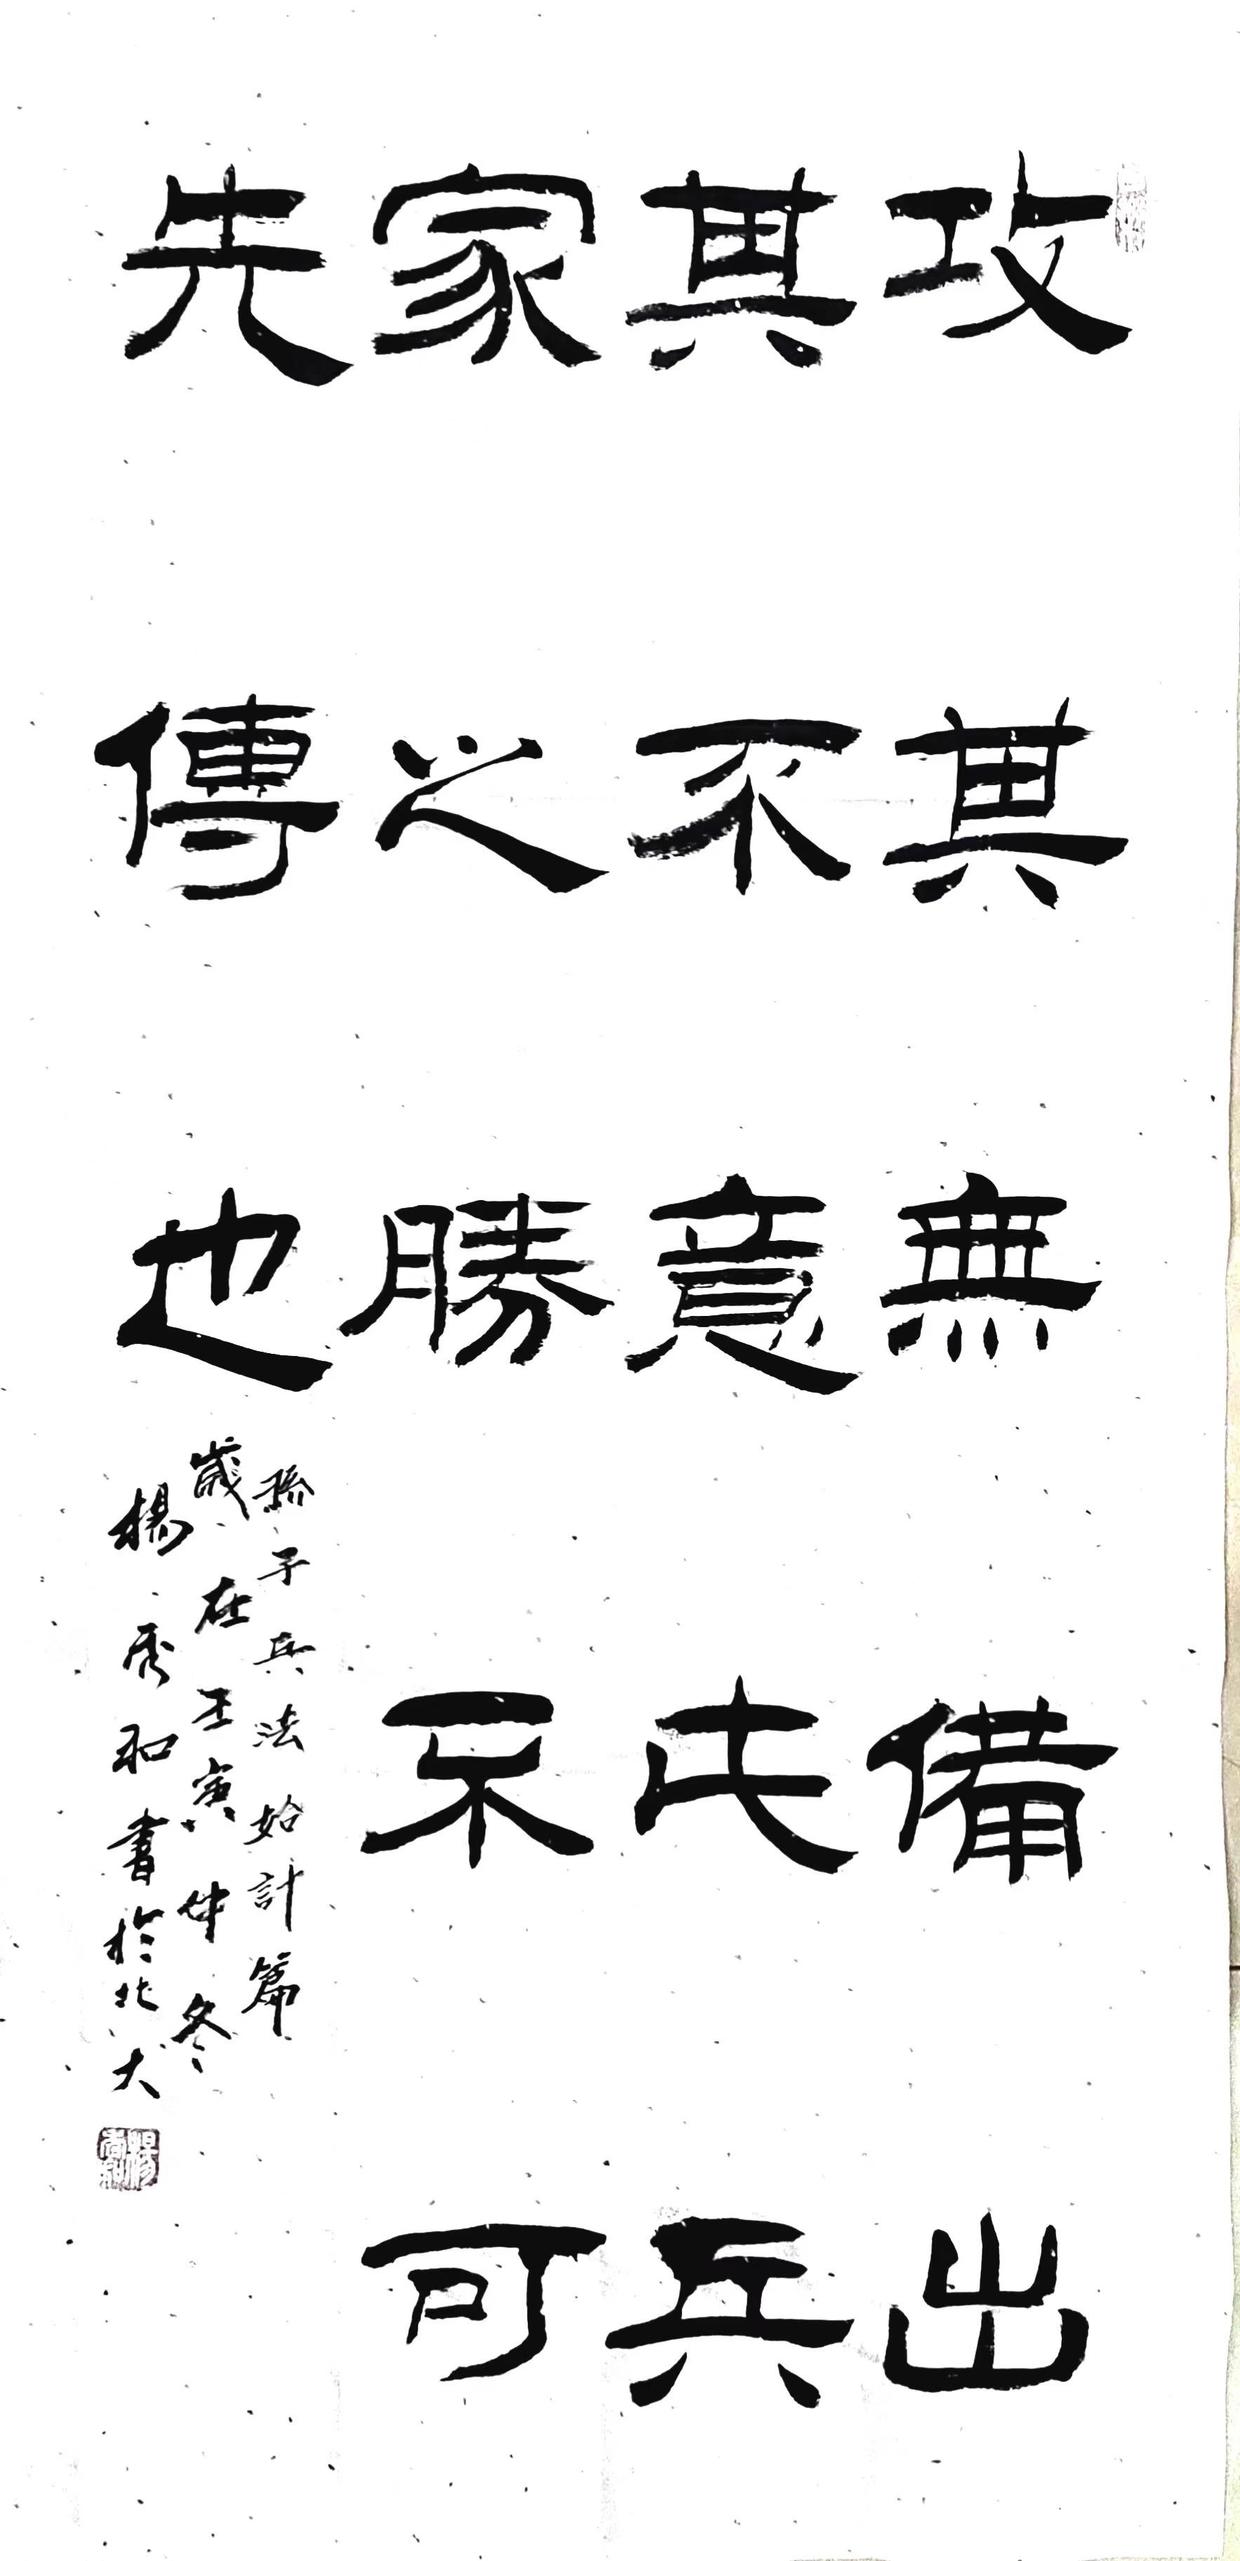 攻其無備出
其不意此兵
家之勝不可
先傳也
孫子兵法始計篇
歲在壬寅仲冬
楊秀和書於北大